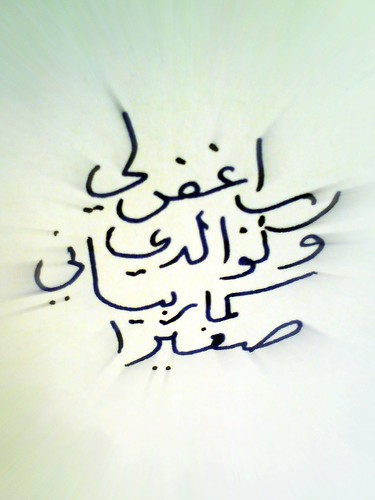 رب اغفر لي
ولوالدي
كما ربياني
صغيرا